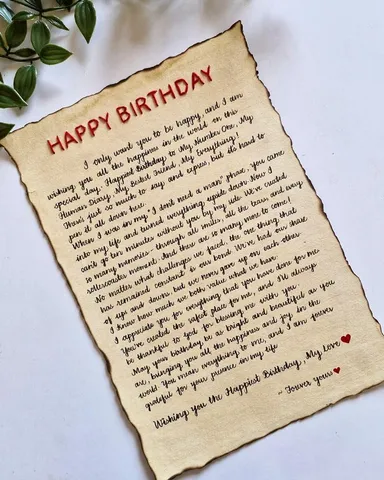 HAPPY BIRTHDAY
I only want you to be happy, and I am
wishing you all the happiness in the world on this
special day. Happied Birthday to My Number One, My
Human Diary, My Bestest Friend, My Everything!
There's just so much to say and express, but it's hard to
put it all down here.
When I was in my "I don't need a man" phase, you came
into my life and turned everything upside down. Now I
can't go ten minutes without you by my side. We've created
so many memories through all smiles, all the tears, and every
rollercoaster moment. And there are so many more to come!
No matter what challenges we faced, the one thing that
has remained constant is our bond. We've had our share
of ups and downs, but we never gave up on each other.
I know how much we both value what we have.
I appreciate you for everything that you have done for me.
You've created the safest place for me, and I'll always
be thankful to God for blessing me with you.
May your birthday be as bright and beautiful as you
are, bringing you all the happiness and joy in the
world. You mean everything to me, and I am forever
grateful for your presence in my life.
Wishing you the Happiest Birthday, My Love ❤
~ Forever yours ❤